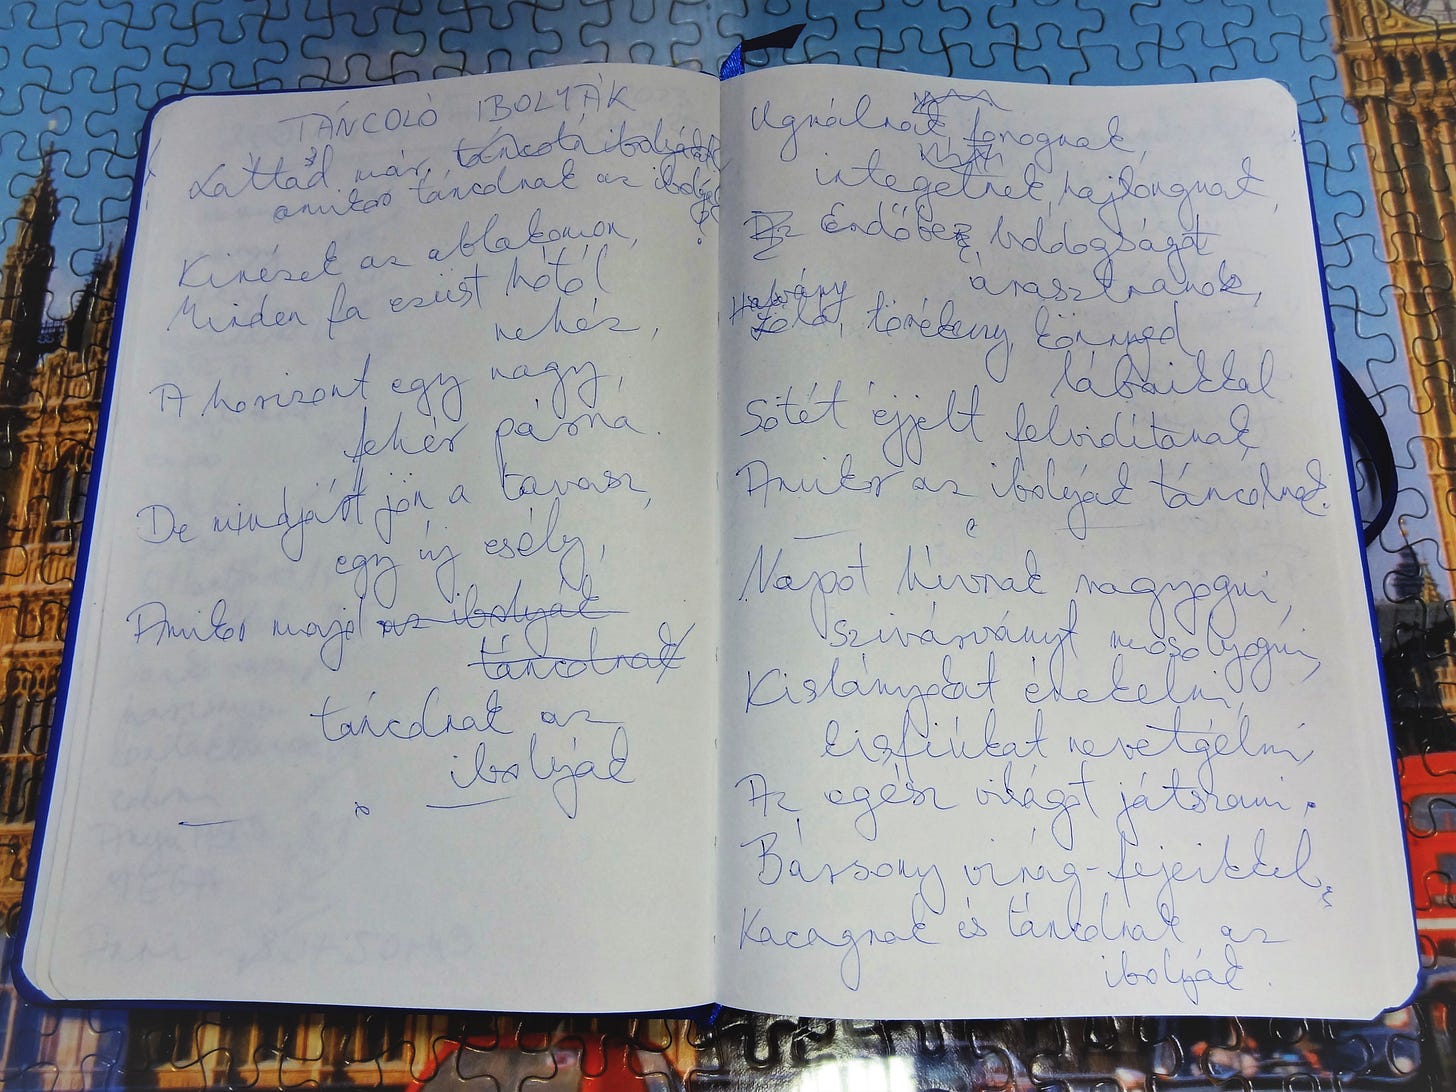 TÁNCOLÓ IBOLYÁK
Láttad már, táncoló ibolyákat
amikor táncolnak az ibolyák
?
Kinézek az ablakomon,
Minden fa ezüst hótól
nehéz,
A horizont egy nagy,
fehér párna.
De mindjárt jön a tavasz,
egy új esély,
Amikor majd az ibolyák
táncolnak
táncolnak az
ibolyák
Ugrálnak, forognak,
integetnek, hajlongnak,
Az Erdőbe boldogságot
árasztanak,
Halvány
Zöld, törékeny, könnyed
lábaikkal
Sötét éjjelt felvidítanak,
Amikor az ibolyák táncolnak.
Napot hívnak ragyogni,
Szivárványt mosolyogni,
Kislányokat énekelni,
kisfiúkat nevetgélni,
Az egész világot játszani.
Bársony virág-fejeikkel,
Kacagnak és táncolnak az
ibolyák.